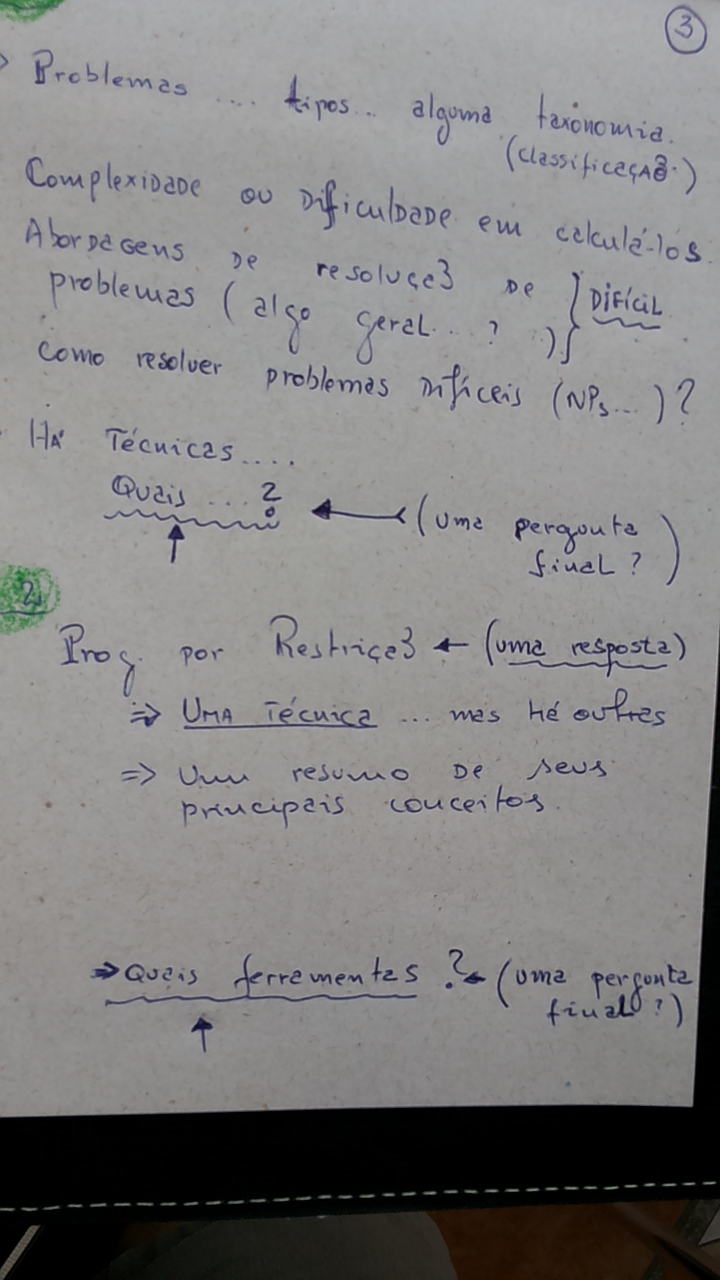 3
Problemas .... tipos... alguma taxonomia.
(classificação.)
Complexidade ou dificuldade em calculá-los.
Abordagens de resolução de
problemas (algo geral...? ) } Difícil
como resolver problemas difíceis (NPs...)?
Há Técnicas....
Quais ... ? ← (uma pergunta
final?)
2)
Prog. por Restrição ← (uma resposta)
⇒ Uma Técnica ... mas há outras
⇒ Um resumo de seus
principais conceitos.
⇒ Quais ferramentas ? ← (uma pergunta
final?)